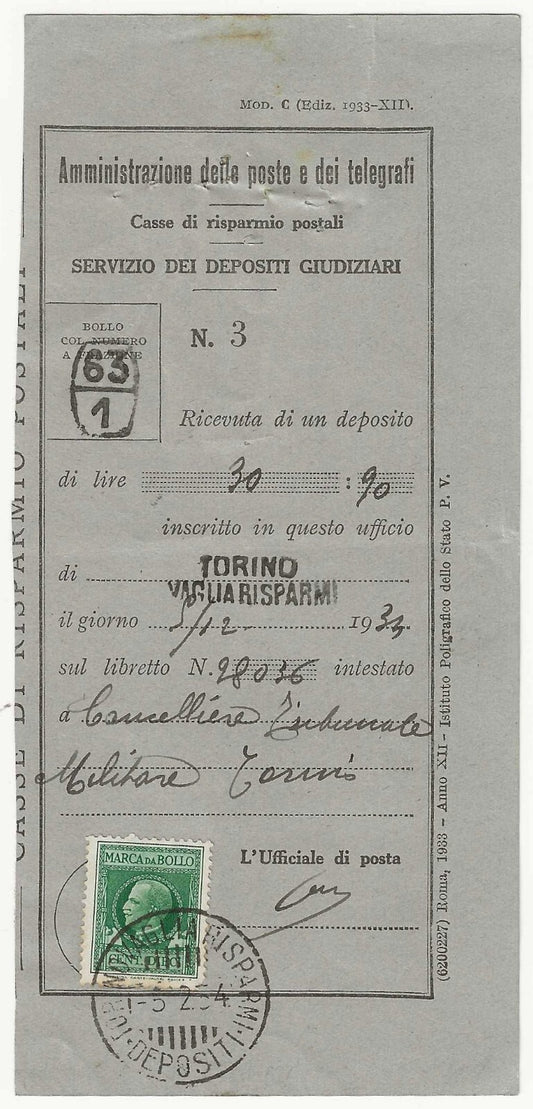 MOD. C (Ediz. 1933-XII).
Amministrazione delle poste e dei telegrafi
Casse di risparmio postali
SERVIZIO DEI DEPOSITI GIUDIZIARI
BOLLO
COL NUMERO
A FRAZIONE
63
1
N. 3
Ricevuta di un deposito
di lire 30 : 90
inscritto in questo ufficio
di TORINO
VAGLIA RISPARMI
il giorno 5/12 1934
sul libretto N. 98036 intestato
a Cancelliere Tribunale
Militare Torino
L'Ufficiale di posta
MARCA DA BOLLO
CENT. DIECI
TORINO VAGLIA RISPARMI
DEPOSITI
CASSE DI RISPARMIO POSTALI
(6200227) Roma, 1933 - Anno XII - Istituto Poligrafico dello Stato P. V.